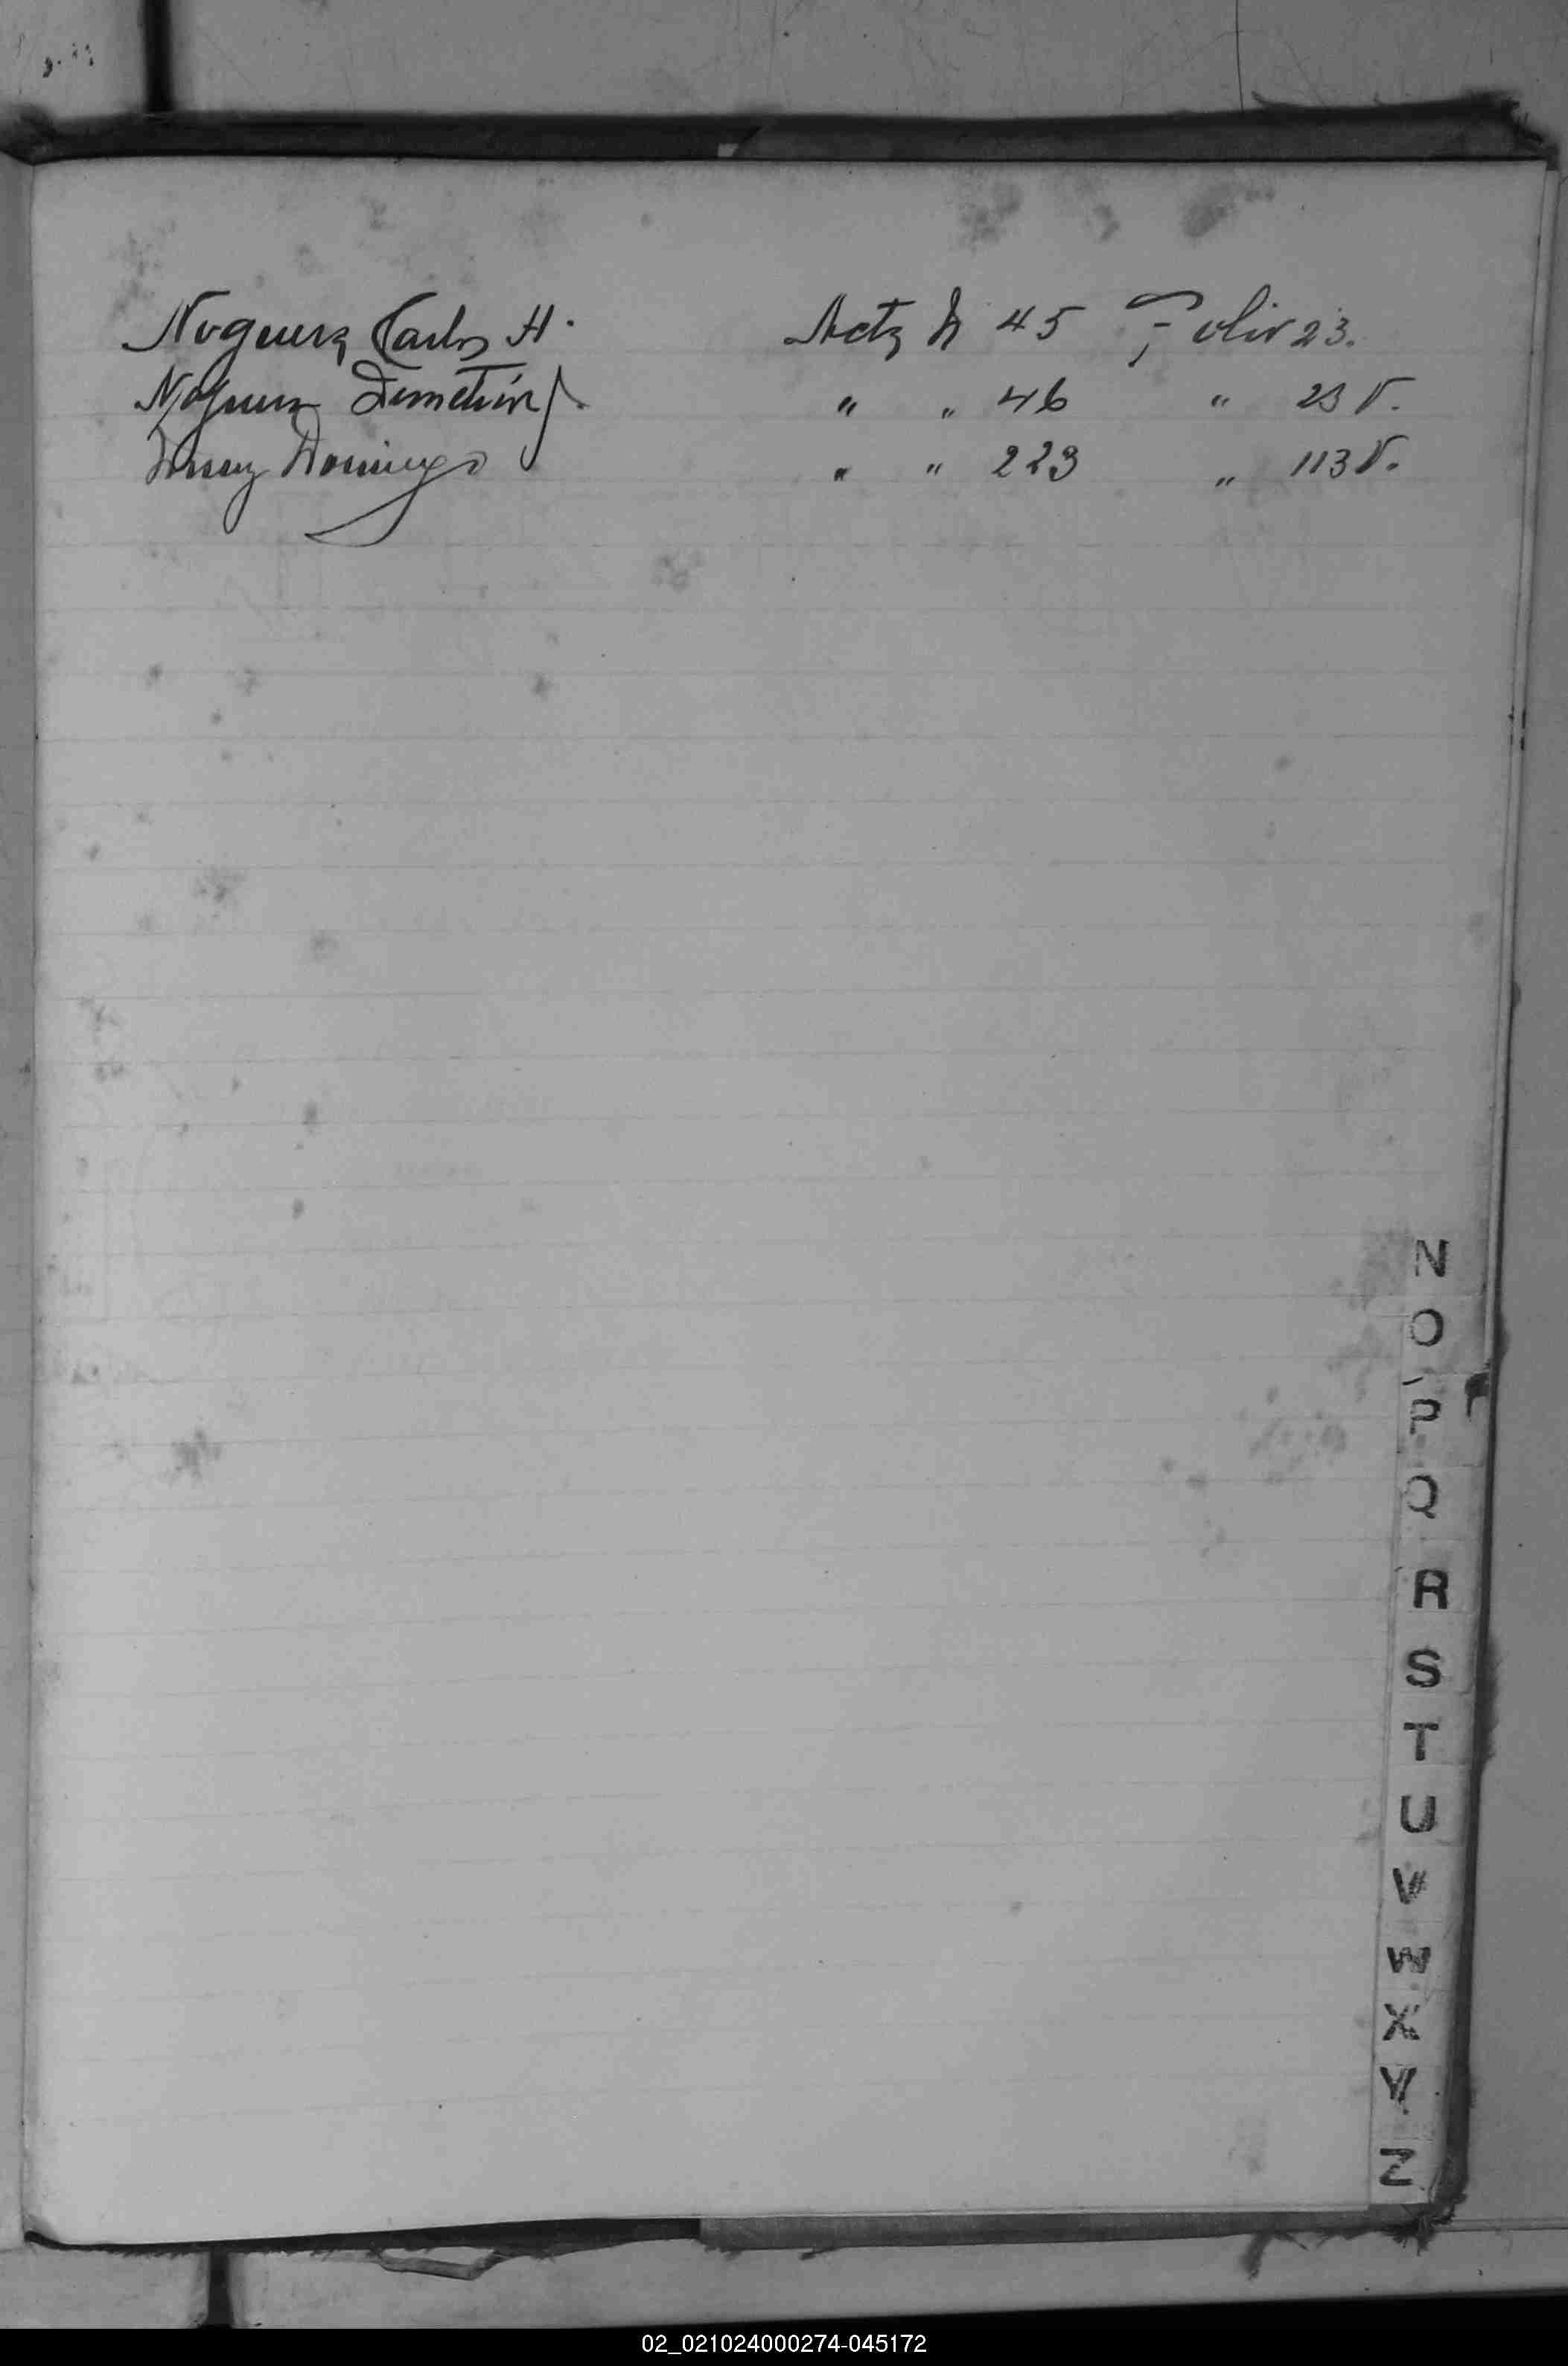 Noguera Carlos H. Acta N 45 Folio 23.
Noguera Demetrio J. " " 46 " 23 V.
Domingo " " 223 " 113 V.
N
O
P
Q
R
S
T
U
V
W
X
Y
Z
02_021024000274-045172